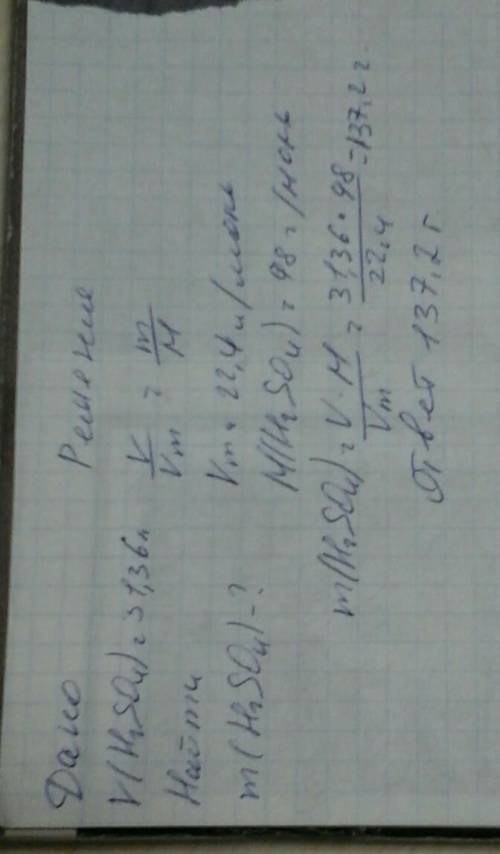 Дано
V(H₂SO₄) = 31,36 л
Найти
m(H₂SO₄) - ?
Решение
V/Vm = m/M
Vm = 22,4 л/моль
M(H₂SO₄) = 98 г/моль
m(H₂SO₄) = V·M/Vm = 31,36·98/22,4 = 137,2 г.
Ответ 137,2 г